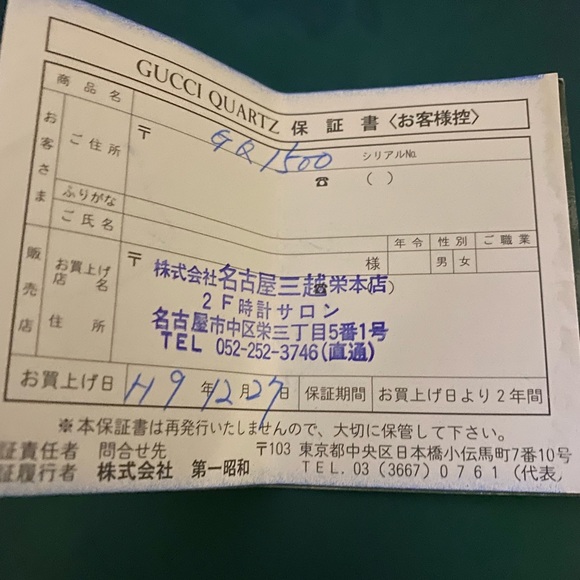 GUCCI QUARTZ 保証書〈お客様控〉
商品名 GQ1500 シリアルNo.
お客さま ご住所 〒 ☎ ( )
ふりがな
ご氏名 様 年令 性別 男 女 ご職業
販売店 お買上げ店名 〒 株式会社名古屋三越栄本店 ☎ ( )
2F時計サロン
住所 名古屋市中区栄三丁目5番1号
TEL 052-252-3746(直通)
お買上げ日 H9年12月27日 保証期間 お買上げ日より2年間
※本保証書は再発行いたしませんので、大切に保管して下さい。
証責任者 問合せ先 〒103 東京都中央区日本橋小伝馬町7番10号
証履行者 株式会社 第一昭和 TEL.03(3667)0761(代表)